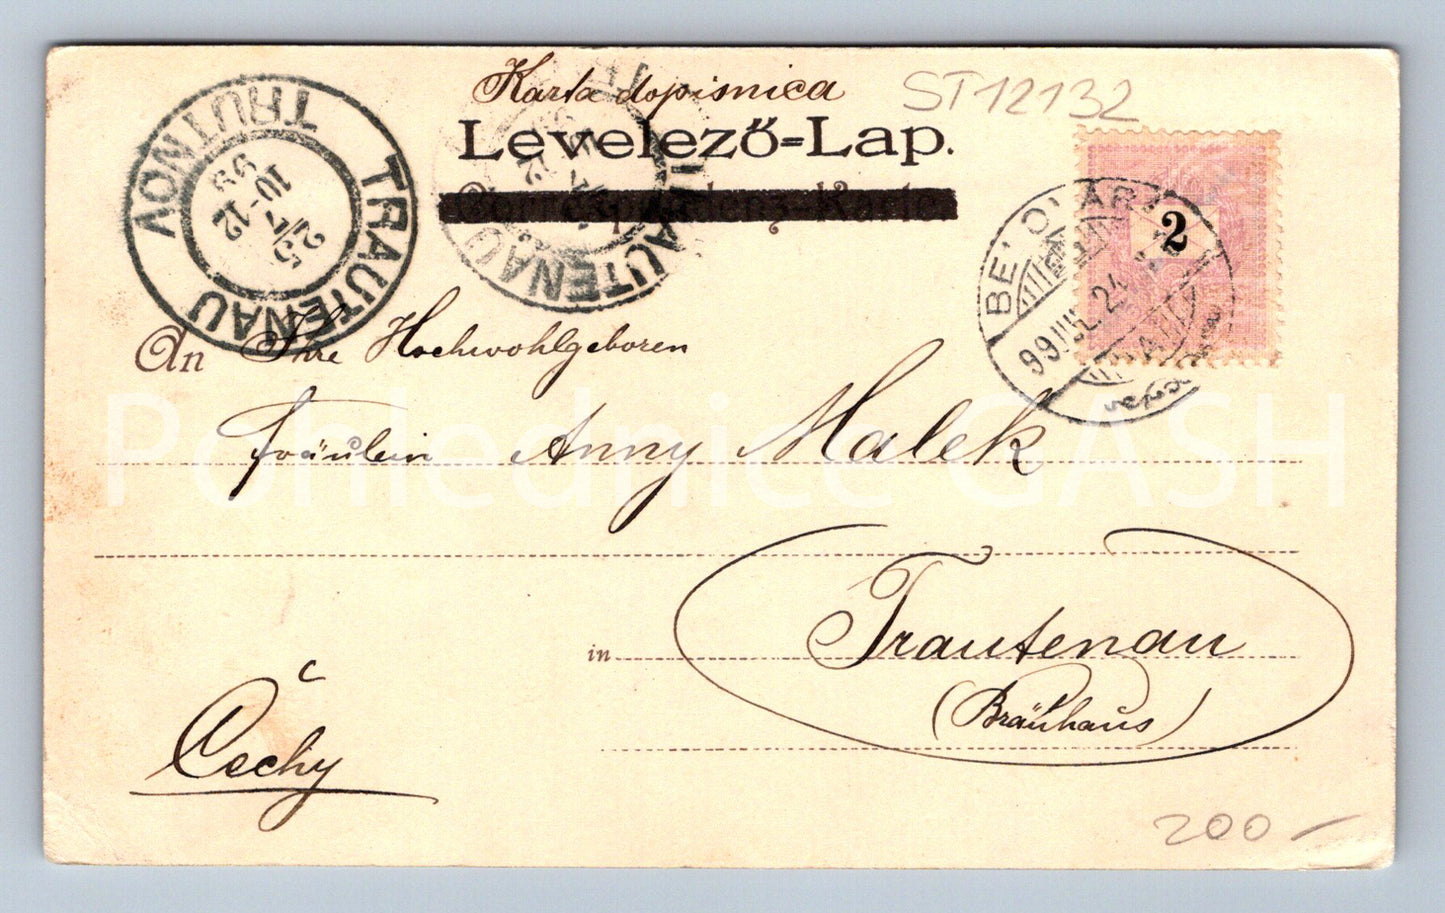 Karta dopisnica
ST12132
Levelező=Lap.
Correspondenz-Karte
2
BELOVÁR
99 JUL. 24
TRAUTENAU
TRUTNOV
25/7
10-12
99
TRAUTENAU
An Ihre Hochwohlgeboren
Fräulein Anny Malek
in Trautenau
(Bräuhaus)
Čechy
200-
Pohlednice GASH